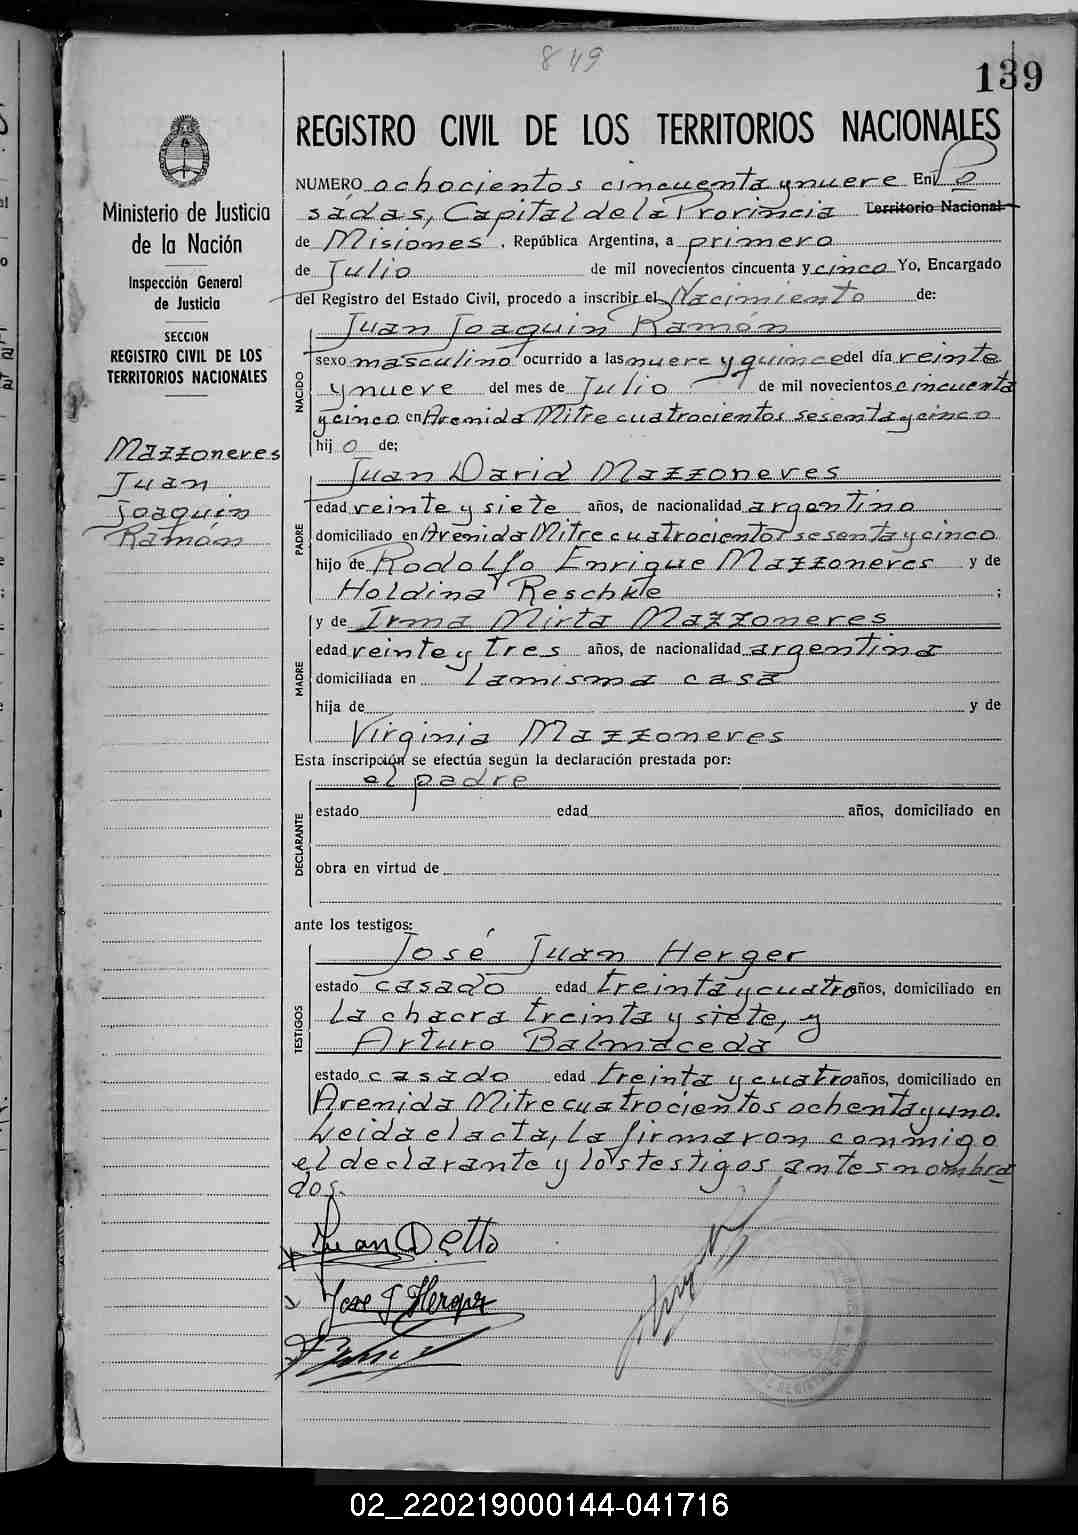 849
139
REGISTRO CIVIL DE LOS TERRITORIOS NACIONALES
Ministerio de Justicia
de la Nación
Inspección General
de Justicia
SECCION
REGISTRO CIVIL DE LOS
TERRITORIOS NACIONALES
Mazzoneves
Juan
Joaquin
Ramón
NUMERO ochocientos cincuenta y nueve En Po
sadas, Capital de la Provincia Territorio Nacional
de Misiones, República Argentina, a primero
de Julio de mil novecientos cincuenta y cinco Yo, Encargado
del Registro del Estado Civil, procedo a inscribir el Nacimiento de:
NACIDO
Juan Joaquin Ramón
sexo masculino ocurrido a las nueve y quince del día veinte
y nueve del mes de Julio de mil novecientos cincuenta
y cinco en Avenida Mitre cuatrocientos sesenta y cinco
hijo de;
PADRE
Juan David Mazzoneves
edad veinte y siete años, de nacionalidad argentino
domiciliado en Avenida Mitre cuatrocientos sesenta y cinco
hijo de Rodolfo Enrique Mazzoneves y de
Holdina Reschke ;
MADRE
y de Irma Mirta Mazzoneves
edad veinte y tres años, de nacionalidad argentina
domiciliada en la misma casa
hija de y de
Virginia Mazzoneves
Esta inscripción se efectúa según la declaración prestada por:
DECLARANTE
el padre
estado edad años, domiciliado en
obra en virtud de
ante los testigos:
TESTIGOS
José Juan Herger
estado casado edad treinta y cuatro años, domiciliado en
la chacra treinta y siete, y
Arturo Balmaceda
estado casado edad treinta y cuatro años, domiciliado en
Avenida Mitre cuatrocientos ochenta y uno.
Leida el acta, la firmaron conmigo
el declarante y los testigos antes nombra
dos.
Juan D etto
Jose J Herger
02_220219000144-041716